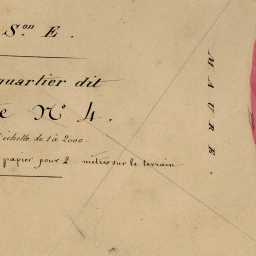 S.on E.
quartier dit
e No 4.
échelle de 1 à 2000.
papier pour 2 mètres sur le terrain
MAURE.